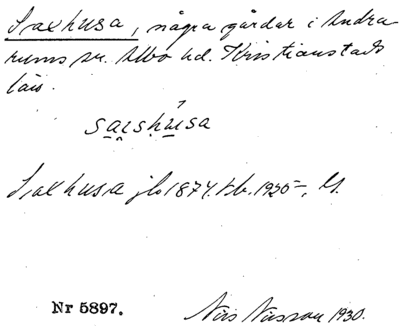 Saxhusa, några gårdar i Andra
rums sn. Albo hd. Kristianstads
län.
Saxhusa jb 1874. 1925, 
Nr 5897.
Nils Nilsson 1930.